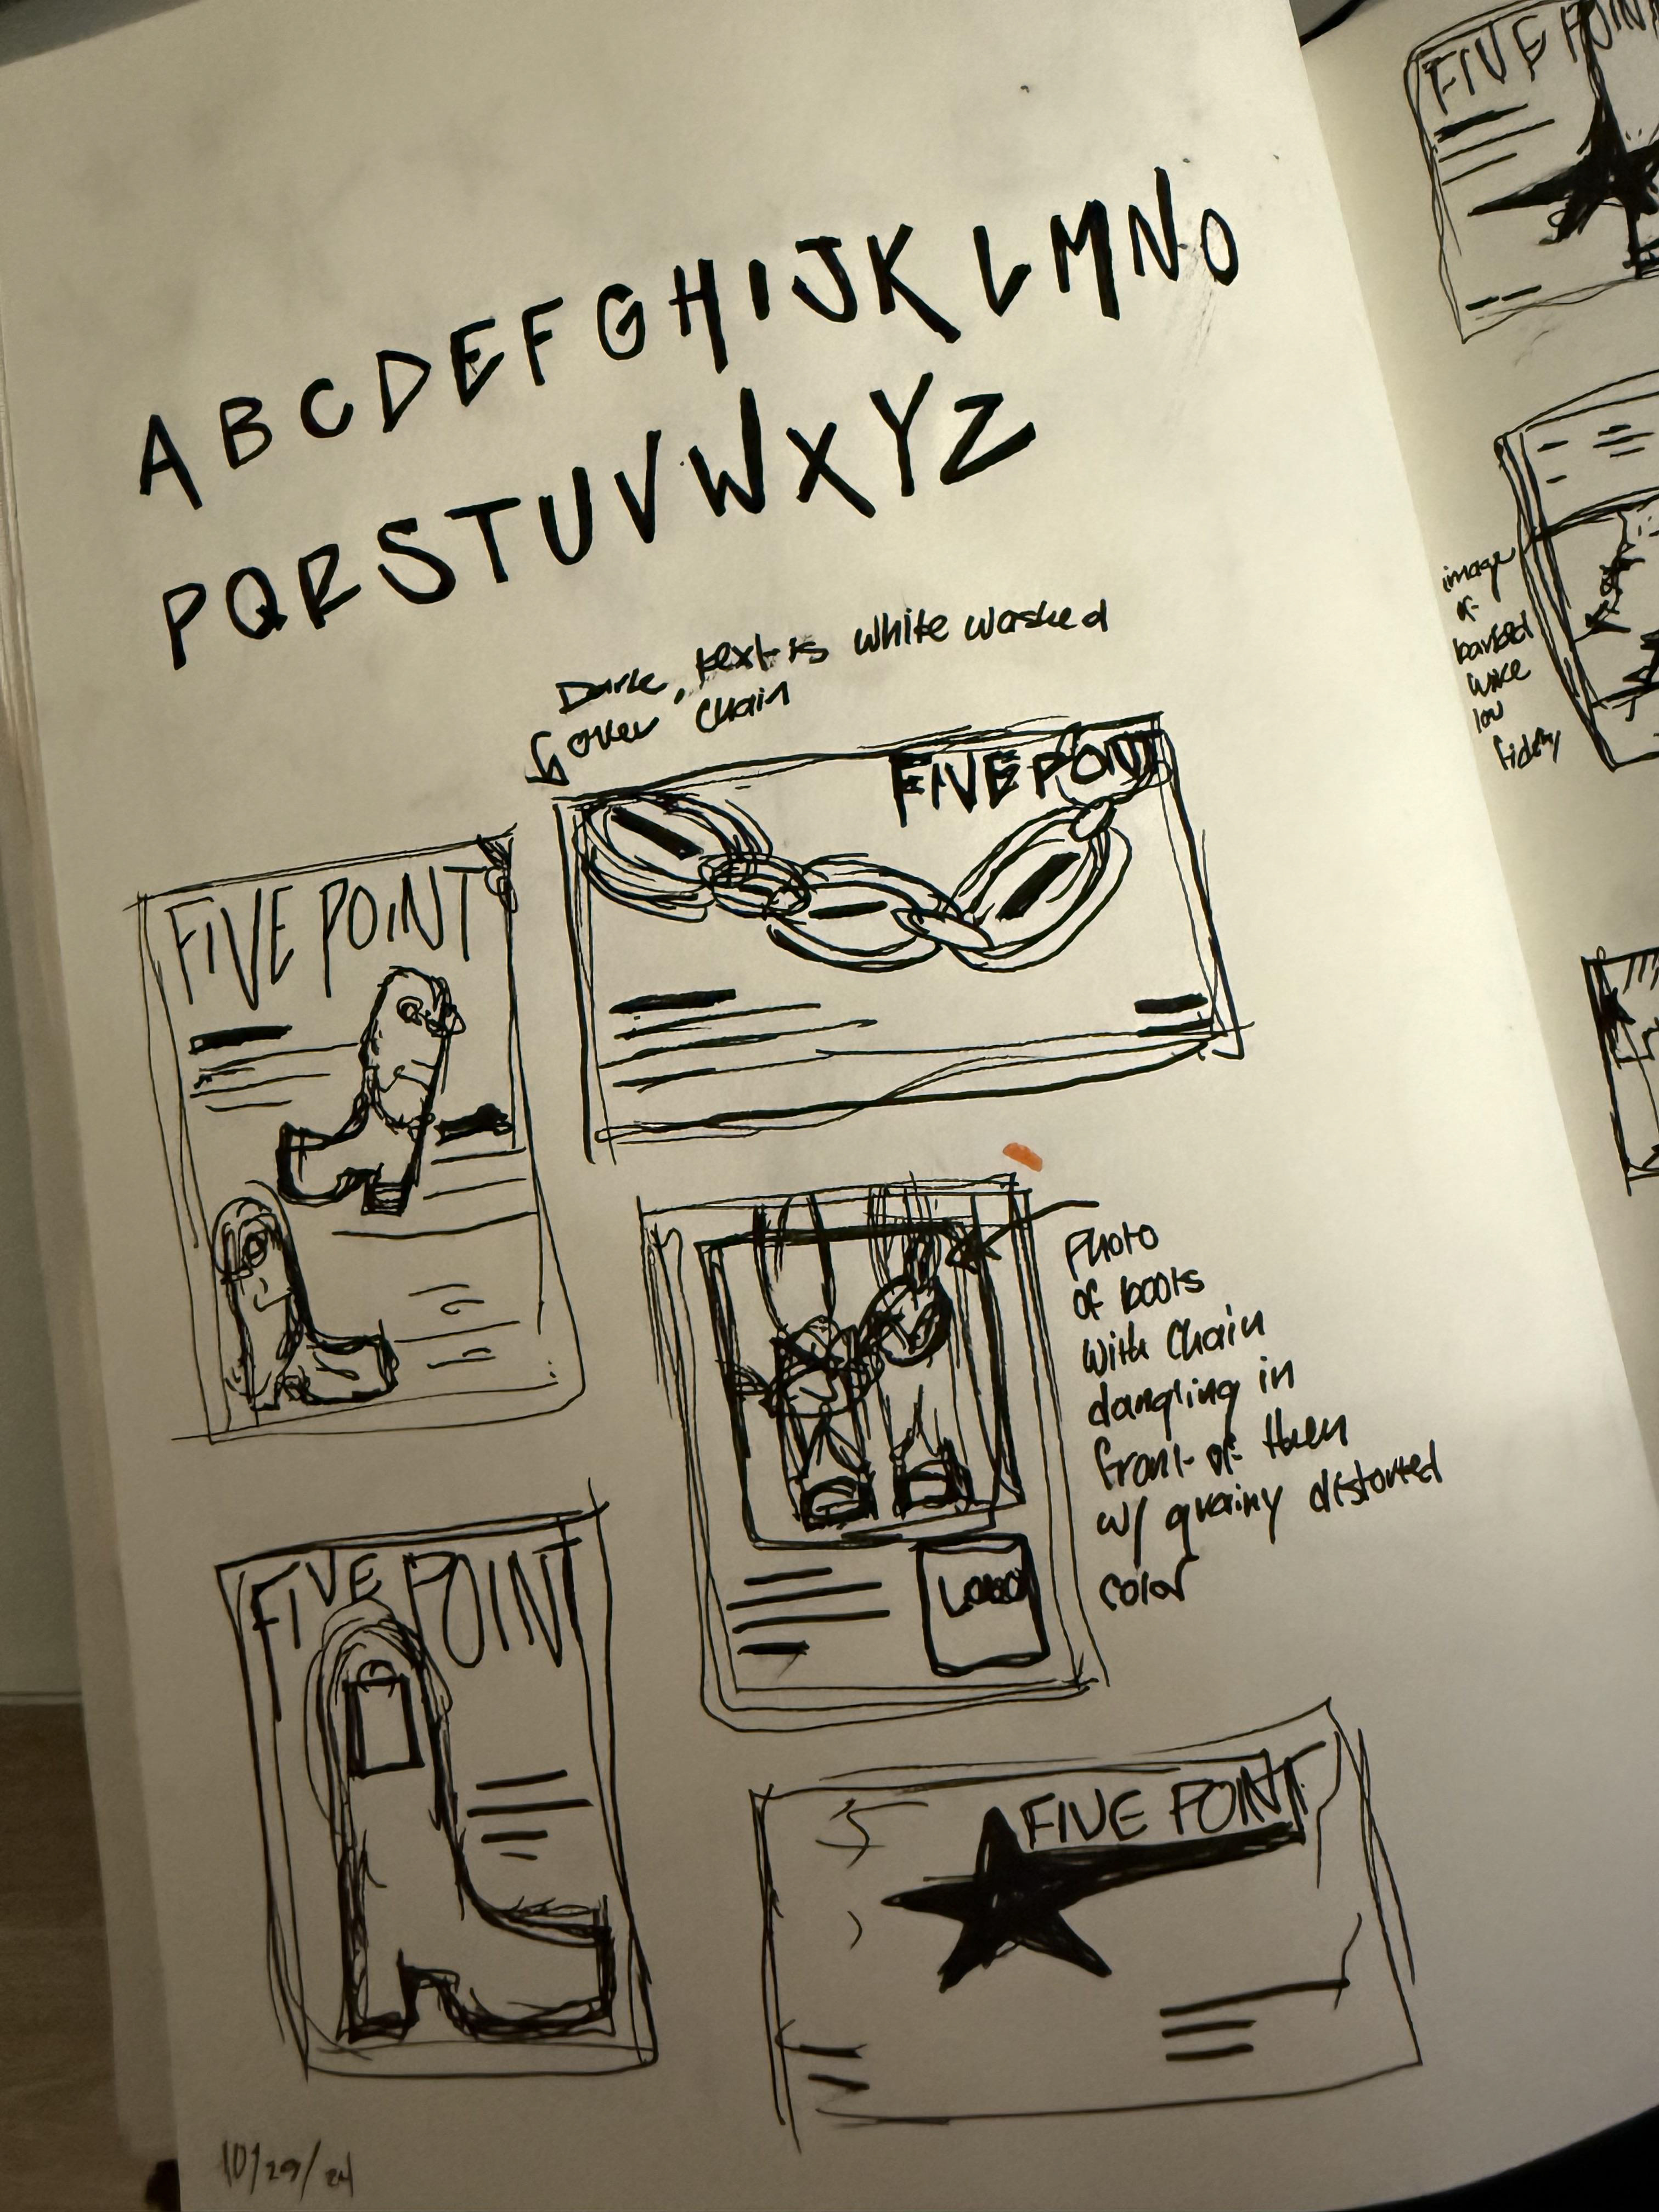 ABCDEFGHIJKLMNO
PQRSTUVWXYZ
Dark, text is white washed
over chain
FIVE POINT
FIVE POINT
Photo
of boots
with chain
dangling in
front of them
w/ grainy distorted
color
LOGO
FIVE POINT
FIVE POINT
10/29/24
FIVE POIN
image
of
barbed
wire
low